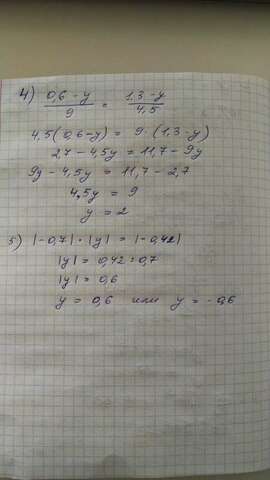 4) (0,6 - y)/9 = (1,3 - y)/4,5
4,5(0,6-y) = 9·(1,3-y)
2,7 - 4,5y = 11,7 - 9y
9y - 4,5y = 11,7 - 2,7
4,5y = 9
y = 2
5) |-0,7|·|y| = |-0,42|
|y| = 0,42:0,7
|y| = 0,6
y = 0,6 или y = -0,6